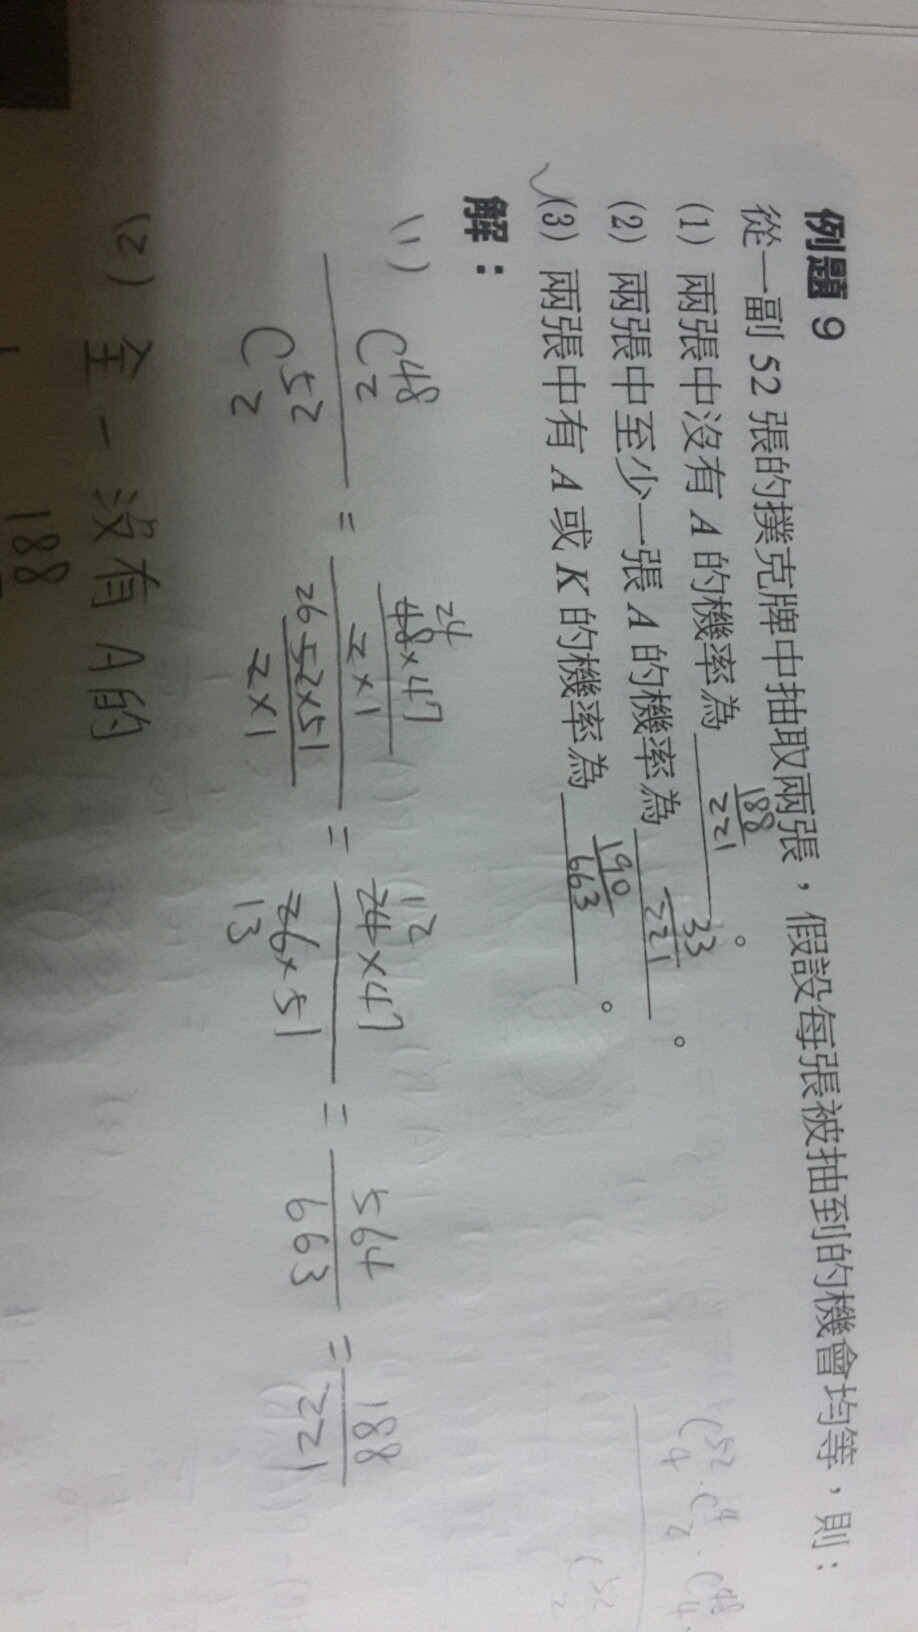 例題 9
從一副 52 張的撲克牌中抽取兩張，假設每張被抽到的機會均等，則：
(1) 兩張中沒有 A 的機率為 188/221 。
(2) 兩張中至少一張 A 的機率為 33/221 。
(3) 兩張中有 A 或 K 的機率為 190/663 。
解：
(1) C48 2 / C52 2 = (48×47 / 2×1) / (52×51 / 2×1) = 24×47 / 26×51 = 564/663 = 188/221
24 26 12 13
(2) 全 - 沒有 A 的
188
C52 4 · C4 2 · C48 4
C52 2